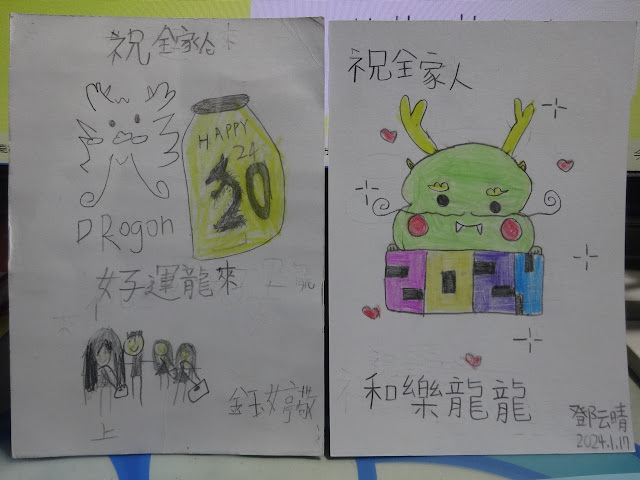 祝全家人
HAPPY
24
20
DRogon
好運龍來
上
祝全家人
2024
和樂龍龍
鄧云晴
2024.1.17